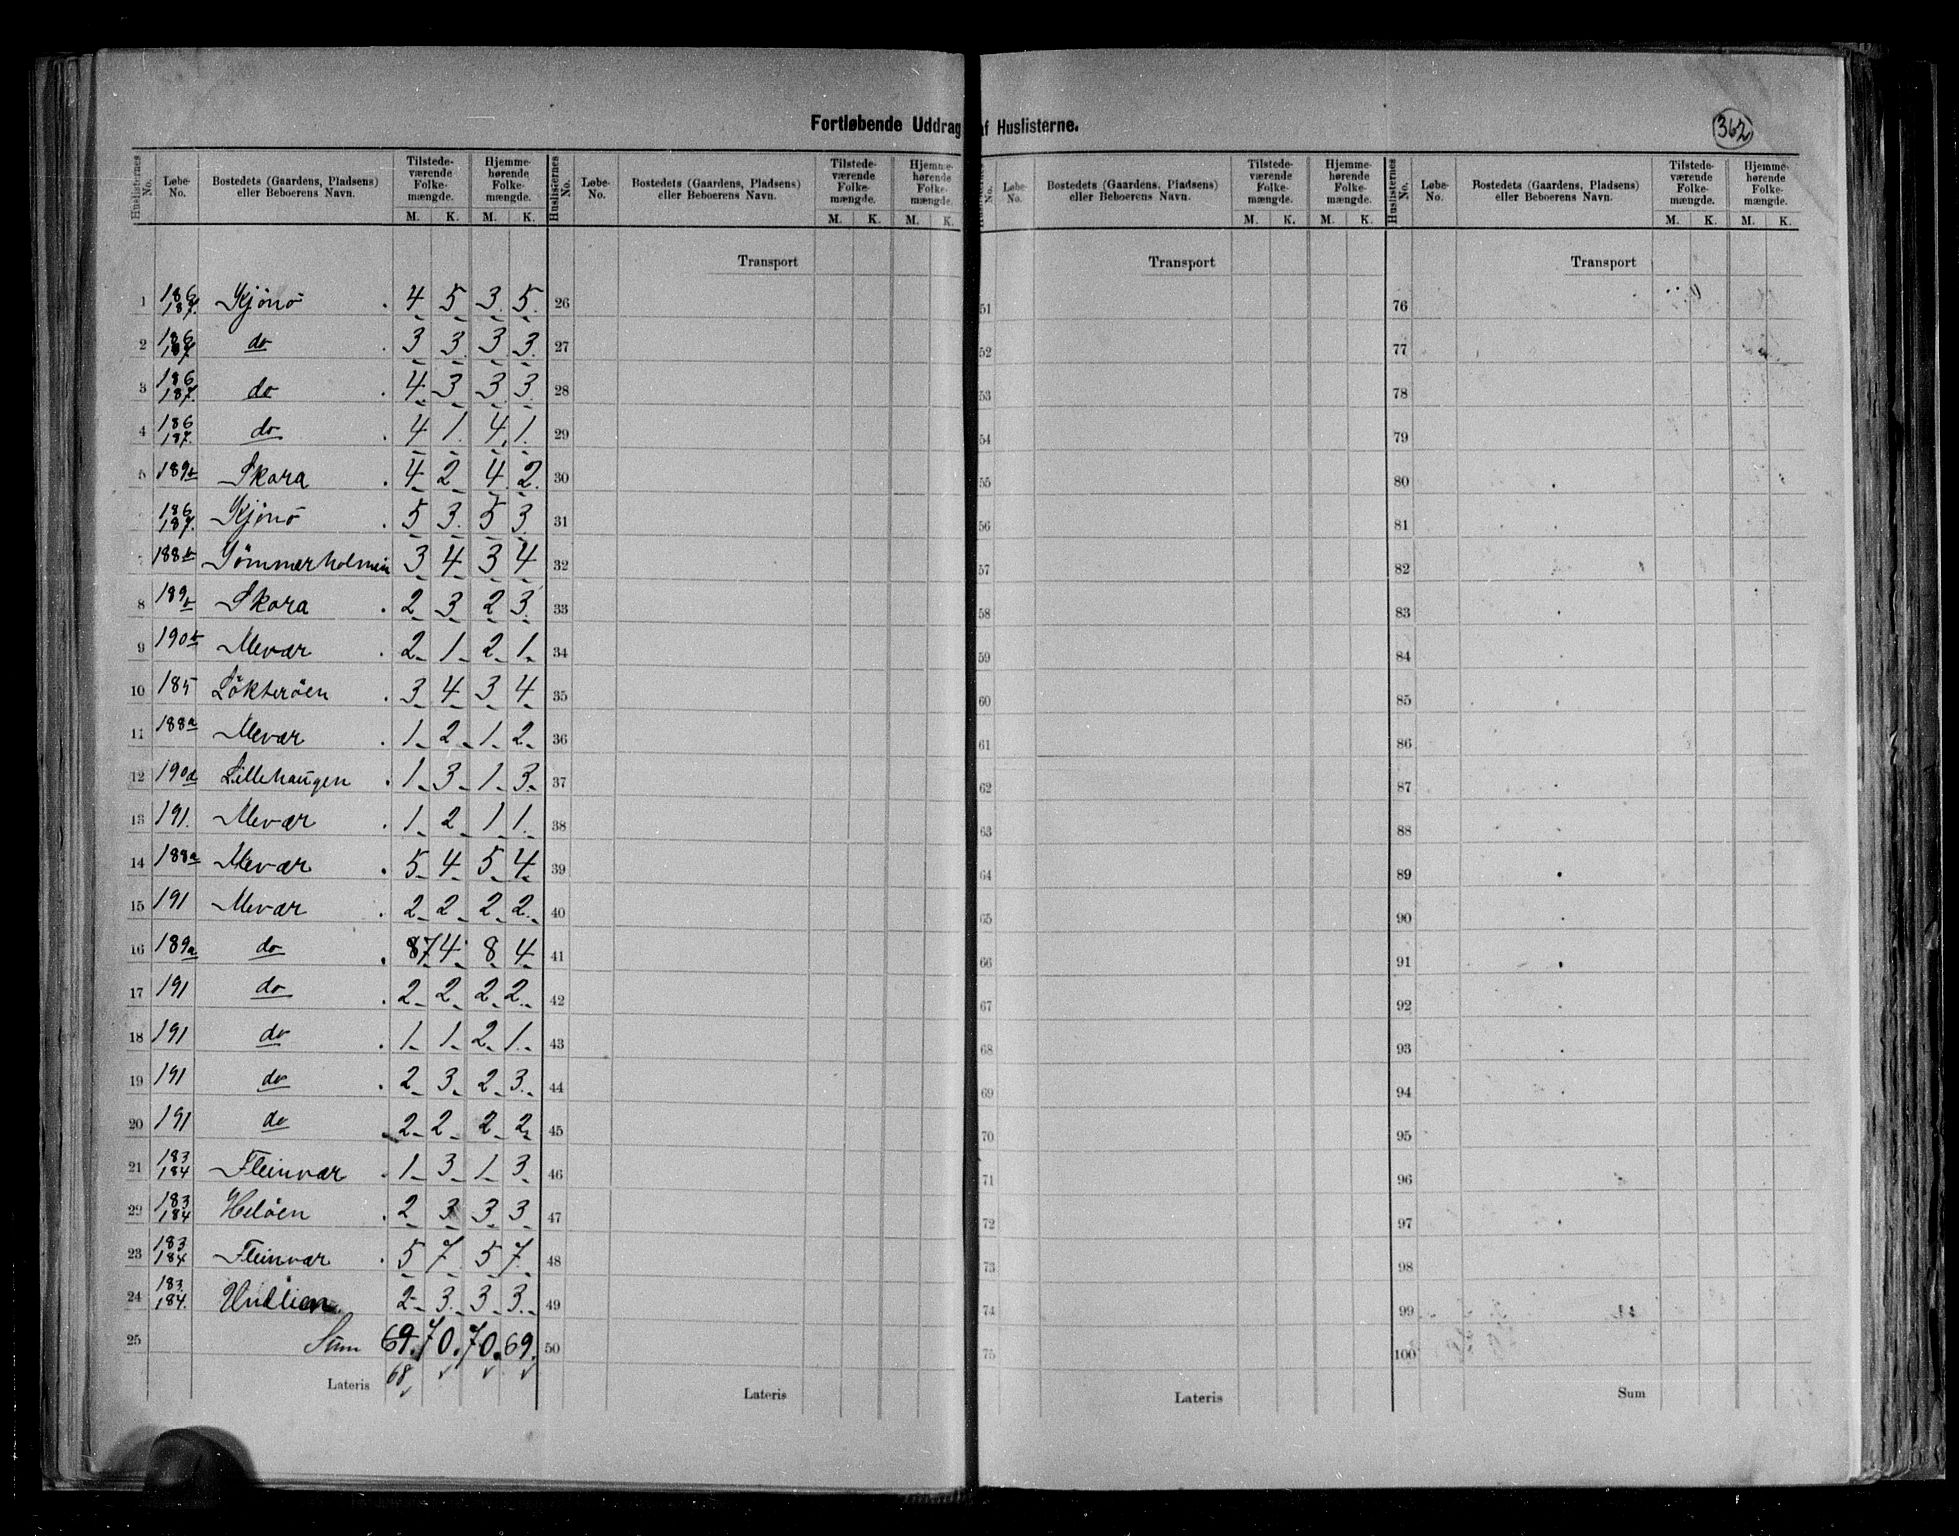 Fortløbende Uddrag af Huslisterne.
362
Huslisternes No. | Løbe-No. | Bostedets (Gaardens, Pladsens) eller Beboerens Navn. | Tilstedeværende Folkemængde. M. K. | Hjemmehørende Folkemængde. M. K.
Huslisternes No. | Løbe-No. | Bostedets (Gaardens, Pladsens) eller Beboerens Navn. | Tilstedeværende Folkemængde. M. K. | Hjemmehørende Folkemængde. M. K.
No. | Løbe-No. | Bostedets (Gaardens, Pladsens) eller Beboerens Navn. | Tilstedeværende Folkemængde. M. K. | Hjemmehørende Folkemængde. M. K.
Huslisternes No. | Løbe-No. | Bostedets (Gaardens, Pladsens) eller Beboerens Navn. | Tilstedeværende Folkemængde. M. K. | Hjemmehørende Folkemængde. M. K.
Transport Transport Transport
1 186 187. Kjönö 4 5 3 5 26 51 76
2 186 187 do 3 3 3 3 27 52 77
3 186 187. do 4 3 3 3 28 53 78
4 186 187. do 4 1 4 1 29 54 79
5 189b Skora 4 2 4 2 30 55 80
186 187. Kjönö 5 3 5 3 31 56 81
188b Tömmerholmen 3 4 3 4 32 57 82
8 189b Skora 2 3 2 3 33 58 83
9 190b Mevær 2 1 2 1 34 59 84
10 185 Løkterøen 3 4 3 4 35 60 85
11 188a Mevær 1 2 1 2 36 61 86
12 190d Lillehaugen 1 3 1 3 37 62 87
13 191. Mevær 1 2 1 1 38 63 88
14 188a Mevær 5 4 5 4 39 64 89
15 191 Mevær 2 2 2 2 40 65 90
16 189a do 87 4 8 4 41 66 91
17 191 do 2 2 2 2 42 67 92
18 191 do 1 1 2 1 43 68 93
19 191 do 2 3 2 3 44 69 94
20 191 do 2 2 2 2 45 70 95
21 183 184 Fleinvær 1 3 1 3 46 71 96
29 183 184 Heløen 2 3 3 3 47 72 97
23 183 184 Fleinvær 5 7 5 7 48 73 98
24 183 184. 2 3 3 3 49 74 99
25 Sum 69. 70. 70. 69. 50 75 100
68
Lateris Lateris Lateris Sum